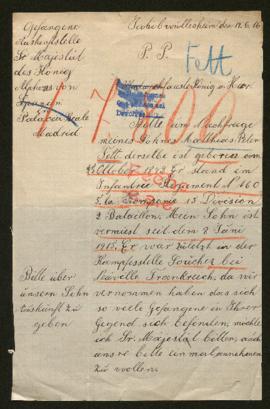 Gefangene
Auskunftstelle
Sr. Majestät
des König
Alphons von
Spanien
Palacio Reale
Madrid
den 19.6.16
P. P.
Fett
König
Bitte um Nachfrage
meines Sohnes Matthias Peter
Fett derselbe ist geboren am
Oktober 1893 Er stand im
Infanterie Regiment No 160
5te Compagnie 15 Division
2 Bataillon. Mein Sohn ist
vermiest seit dem 8 Juni
1915. Er war zuletzt in der
Kampfesstelle Souchez bei
Neuville Frankreich, da wir
vernommen haben das sich
so viele Gefangene in Ihrer
Gegend sich befinden, möchte
ich Sr. Majestät bitten, auch
unsre bitte annehmen
zu wollen.
Bitte über
unsern Sohn
Auskunft zu
geben